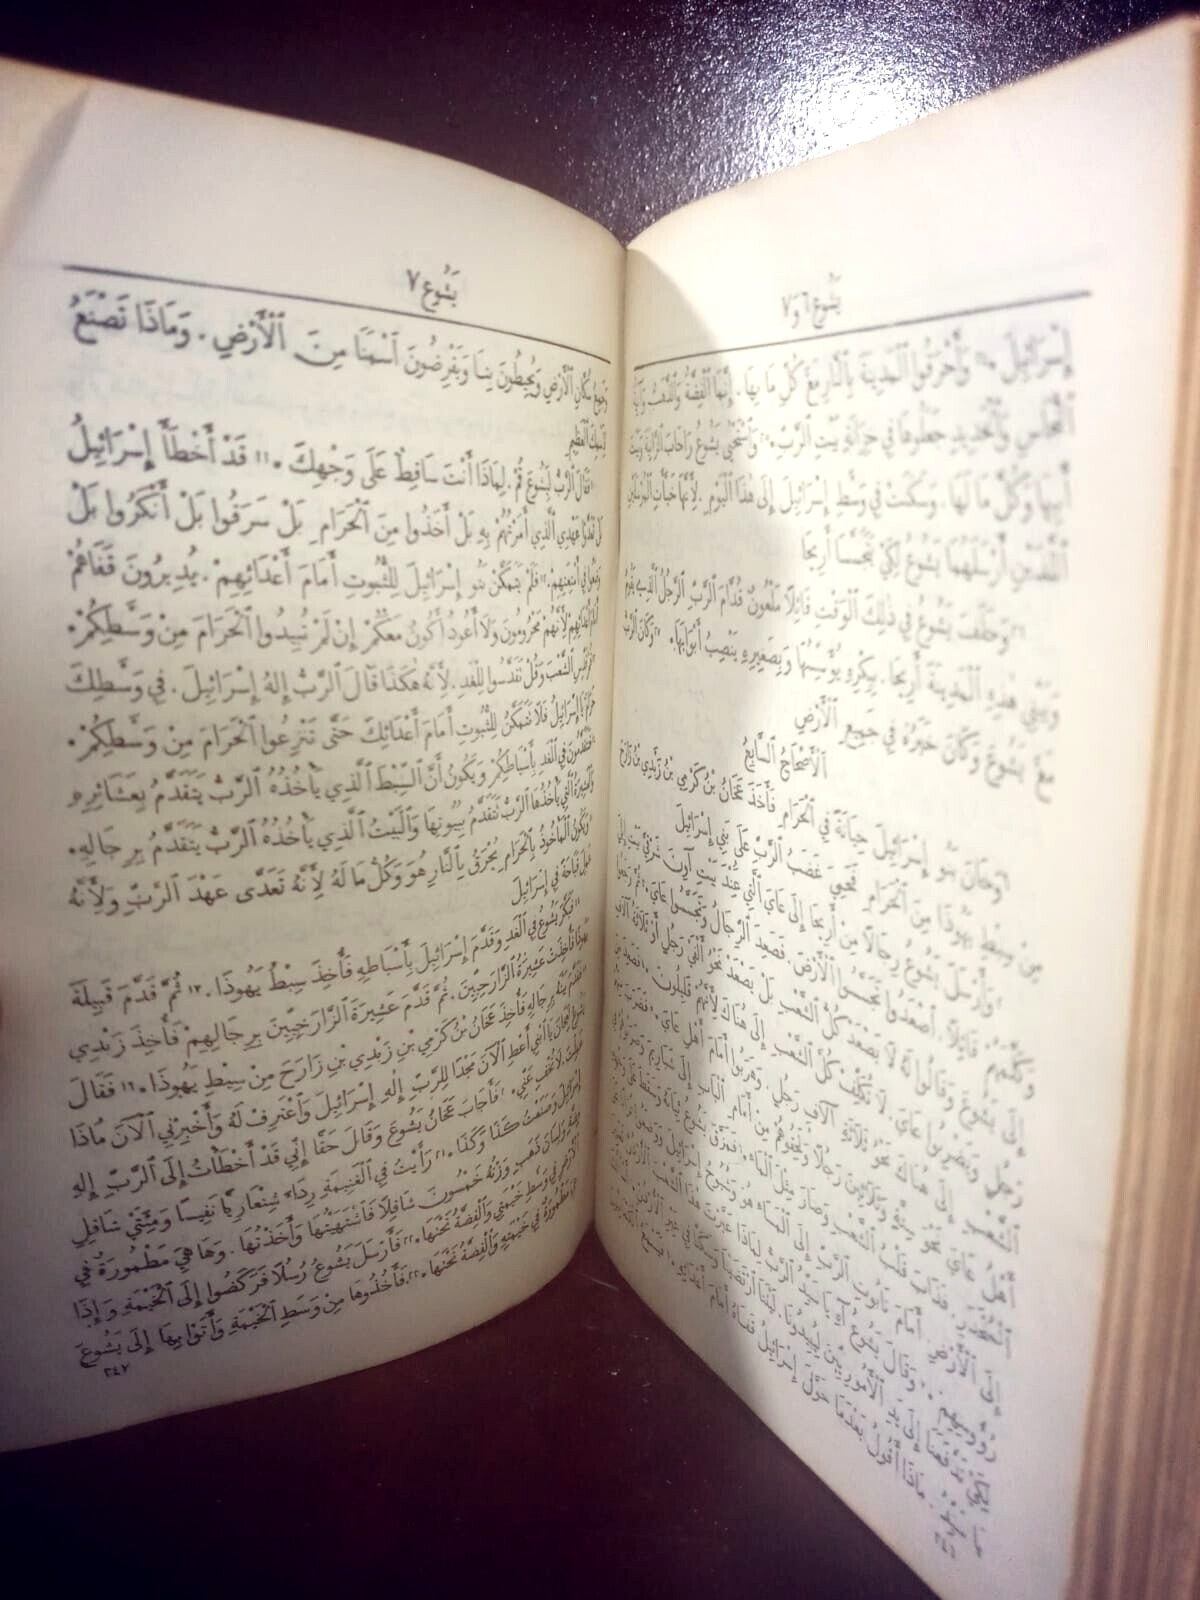 يَشُوعُ ٦ و٧
إِسْرَائِيلَ. وَأَحْرَقُوا ٱلْمَدِينَةَ بِٱلنَّارِ مَعَ كُلِّ مَا بِهَا. إِنَّمَا ٱلْفِضَّةُ وَٱلذَّهَبُ وَآنِيَةُ
ٱلنُّحَاسِ وَٱلْحَدِيدِ جَعَلُوهَا فِي خِزَانَةِ بَيْتِ ٱلرَّبِّ. وَٱسْتَحْيَى يَشُوعُ رَاحَابَ ٱلزَّانِيَةَ وَبَيْتَ
أَبِيهَا وَكُلَّ مَا لَهَا. وَسَكَنَتْ فِي وَسَطِ إِسْرَائِيلَ إِلَى هٰذَا ٱلْيَوْمِ. لِأَنَّهَا خَبَّأَتِ ٱلْمُرْسَلَيْنِ
ٱللَّذَيْنِ أَرْسَلَهُمَا يَشُوعُ لِكَيْ يَتَجَسَّسَا أَرِيحَا
وَحَلَفَ يَشُوعُ فِي ذٰلِكَ ٱلْوَقْتِ قَائِلًا مَلْعُونٌ قُدَّامَ ٱلرَّبِّ ٱلرَّجُلُ ٱلَّذِي يَقُومُ
وَيَبْنِي هٰذِهِ ٱلْمَدِينَةَ أَرِيحَا. بِبِكْرِهِ يُؤَسِّسُهَا وَبِصَغِيرِهِ يَنْصِبُ أَبْوَابَهَا. وَكَانَ ٱلرَّبُّ
مَعَ يَشُوعَ وَكَانَ خَبَرُهُ فِي جَمِيعِ ٱلْأَرْضِ
ٱلْأَصْحَاحُ ٱلسَّابِعُ
وَخَانَ بَنُو إِسْرَائِيلَ خِيَانَةً فِي ٱلْحَرَامِ فَأَخَذَ عَخَانُ بْنُ كَرْمِي بْنِ زَبْدِي بْنِ زَارَحَ
مِنْ سِبْطِ يَهُوذَا مِنَ ٱلْحَرَامِ فَحَمِيَ غَضَبُ ٱلرَّبِّ عَلَى بَنِي إِسْرَائِيلَ
وَأَرْسَلَ يَشُوعُ رِجَالًا مِنْ أَرِيحَا إِلَى عَايَ ٱلَّتِي عِنْدَ بَيْتِ آوِنَ شَرْقِيَّ بَيْتِ إِيلَ
وَكَلَّمَهُمْ قَائِلًا. ٱصْعَدُوا تَجَسَّسُوا ٱلْأَرْضَ. فَصَعِدَ ٱلرِّجَالُ وَتَجَسَّسُوا عَايَ. ثُمَّ رَجَعُوا
إِلَى يَشُوعَ وَقَالُوا لَهُ لَا يَصْعَدْ كُلُّ ٱلشَّعْبِ بَلْ يَصْعَدْ نَحْوُ أَلْفَيْ رَجُلٍ أَوْ ثَلَاثَةُ آلَافِ
رَجُلٍ وَيَضْرِبُوا عَايَ. لَا تُكَلِّفْ كُلَّ ٱلشَّعْبِ إِلَى هُنَاكَ لِأَنَّهُمْ قَلِيلُونَ. فَصَعِدَ مِنَ
ٱلشَّعْبِ إِلَى هُنَاكَ نَحْوُ ثَلَاثَةِ آلَافِ رَجُلٍ. وَهَرَبُوا أَمَامَ أَهْلِ عَايَ. فَضَرَبَ مِنْهُمْ
أَهْلُ عَايَ نَحْوَ سِتَّةٍ وَثَلَاثِينَ رَجُلًا وَلَحِقُوهُمْ مِنْ أَمَامِ ٱلْبَابِ إِلَى شَبَارِيمَ وَضَرَبُوهُمْ فِي
ٱلْمُنْحَدَرِ. فَذَابَ قَلْبُ ٱلشَّعْبِ وَصَارَ مِثْلَ ٱلْمَاءِ. فَمَزَّقَ يَشُوعُ ثِيَابَهُ وَسَقَطَ عَلَى وَجْهِهِ
إِلَى ٱلْأَرْضِ أَمَامَ تَابُوتِ ٱلرَّبِّ إِلَى ٱلْمَسَاءِ هُوَ وَشُيُوخُ إِسْرَائِيلَ وَوَضَعُوا
رُؤُوسِهِمْ. وَقَالَ يَشُوعُ آهِ يَا سَيِّدُ ٱلرَّبُّ لِمَاذَا عَبَّرْتَ هٰذَا ٱلشَّعْبَ
لِكَيْ تَدْفَعَنَا إِلَى يَدِ ٱلْأَمُورِيِّينَ لِيُبِيدُونَا. لَيْتَنَا ٱرْتَضَيْنَا وَسَكَنَّا فِي عَبْرِ ٱلْأُرْدُنِّ
مَاذَا أَقُولُ بَعْدَمَا حَوَّلَ إِسْرَائِيلُ قَفَاهُ أَمَامَ أَعْدَائِهِ.
يَشُوعُ ٧
وَجَمِيعُ سُكَّانِ ٱلْأَرْضِ وَيُحِيطُونَ بِنَا وَيَقْرِضُونَ ٱسْمَنَا مِنَ ٱلْأَرْضِ. وَمَاذَا تَصْنَعُ
لِٱسْمِكَ ٱلْعَظِيمِ
فَقَالَ ٱلرَّبُّ لِيَشُوعَ قُمْ. لِمَاذَا أَنْتَ سَاقِطٌ عَلَى وَجْهِكَ. ١١ قَدْ أَخْطَأَ إِسْرَائِيلُ
بَلْ تَعَدَّوْا عَهْدِي ٱلَّذِي أَمَرْتُهُمْ بِهِ بَلْ أَخَذُوا مِنَ ٱلْحَرَامِ بَلْ سَرَقُوا بَلْ أَنْكَرُوا بَلْ
وَضَعُوا فِي أَمْتِعَتِهِمْ. فَلَمْ يَتَمَكَّنْ بَنُو إِسْرَائِيلَ لِلثُّبُوتِ أَمَامَ أَعْدَائِهِمْ. يُدِيرُونَ قَفَاهُمْ
أَمَامَ أَعْدَائِهِمْ لِأَنَّهُمْ مَحْرُومُونَ وَلَا أَعُودُ أَكُونُ مَعَكُمْ إِنْ لَمْ تُبِيدُوا ٱلْحَرَامَ مِنْ وَسَطِكُمْ.
قُمْ قَدِّسِ ٱلشَّعْبَ وَقُلْ تَقَدَّسُوا لِلْغَدِ. لِأَنَّهُ هٰكَذَا قَالَ ٱلرَّبُّ إِلٰهُ إِسْرَائِيلَ. فِي وَسَطِكَ
حَرَامٌ يَا إِسْرَائِيلُ فَلَا تَتَمَكَّنُ لِلثُّبُوتِ أَمَامَ أَعْدَائِكَ حَتَّى تَنْزِعُوا ٱلْحَرَامَ مِنْ وَسَطِكُمْ.
فَتَتَقَدَّمُونَ فِي ٱلْغَدِ بِأَسْبَاطِكُمْ وَيَكُونُ أَنَّ ٱلسِّبْطَ ٱلَّذِي يَأْخُذُهُ ٱلرَّبُّ يَتَقَدَّمُ بِعَشَائِرِهِ
وَٱلْعَشِيرَةُ ٱلَّتِي يَأْخُذُهَا ٱلرَّبُّ تَتَقَدَّمُ بِبُيُوتِهَا وَٱلْبَيْتُ ٱلَّذِي يَأْخُذُهُ ٱلرَّبُّ يَتَقَدَّمُ بِرِجَالِهِ.
وَيَكُونُ ٱلْمَأْخُوذُ بِٱلْحَرَامِ يُحْرَقُ بِٱلنَّارِ هُوَ وَكُلُّ مَا لَهُ لِأَنَّهُ تَعَدَّى عَهْدَ ٱلرَّبِّ وَلِأَنَّهُ
عَمِلَ قَبَاحَةً فِي إِسْرَائِيلَ
فَبَكَّرَ يَشُوعُ فِي ٱلْغَدِ وَقَدَّمَ إِسْرَائِيلَ بِأَسْبَاطِهِ فَأُخِذَ سِبْطُ يَهُوذَا. ١٧ ثُمَّ قَدَّمَ قَبِيلَةَ
يَهُوذَا فَأُخِذَتْ عَشِيرَةُ ٱلزَّارَحِيِّينَ. ثُمَّ قَدَّمَ عَشِيرَةَ ٱلزَّارَحِيِّينَ بِرِجَالِهِمْ فَأُخِذَ زَبْدِي
فَقَدَّمَ بَيْتَهُ بِرِجَالِهِ فَأُخِذَ عَخَانُ بْنُ كَرْمِي بْنِ زَبْدِي بْنِ زَارَحَ مِنْ سِبْطِ يَهُوذَا. ١٩ فَقَالَ
يَشُوعُ لِعَخَانَ يَا ٱبْنِي أَعْطِ ٱلْآنَ مَجْدًا لِلرَّبِّ إِلٰهِ إِسْرَائِيلَ وَٱعْتَرِفْ لَهُ وَأَخْبِرْنِي ٱلْآنَ مَاذَا
عَمِلْتَ. لَا تُخْفِ عَنِّي. فَأَجَابَ عَخَانُ يَشُوعَ وَقَالَ حَقًّا إِنِّي قَدْ أَخْطَأْتُ إِلَى ٱلرَّبِّ إِلٰهِ
إِسْرَائِيلَ وَصَنَعْتُ كَذَا وَكَذَا. ٢١ رَأَيْتُ فِي ٱلْغَنِيمَةِ رِدَاءً شِنْعَارِيًّا نَفِيسًا وَمِئَتَيْ شَاقِلِ
فِضَّةٍ وَلِسَانَ ذَهَبٍ وَزْنُهُ خَمْسُونَ شَاقِلًا فَٱشْتَهَيْتُهَا وَأَخَذْتُهَا. وَهَا هِيَ مَطْمُورَةٌ فِي
ٱلْأَرْضِ فِي وَسَطِ خَيْمَتِي وَٱلْفِضَّةُ تَحْتَهَا. ٢٢ فَأَرْسَلَ يَشُوعُ رُسُلًا فَرَكَضُوا إِلَى ٱلْخَيْمَةِ وَإِذَا
هِيَ مَطْمُورَةٌ فِي خَيْمَتِهِ وَٱلْفِضَّةُ تَحْتَهَا. ٢٣ فَأَخَذُوهَا مِنْ وَسَطِ ٱلْخَيْمَةِ وَأَتَوْا بِهَا إِلَى يَشُوعَ
٣٤٧